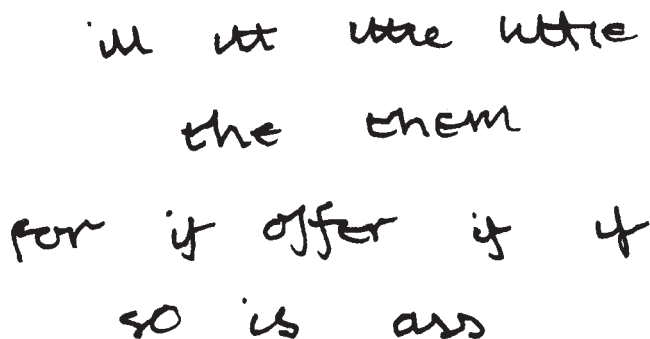 ill itt little little
the them
for if offer if if
so is ass